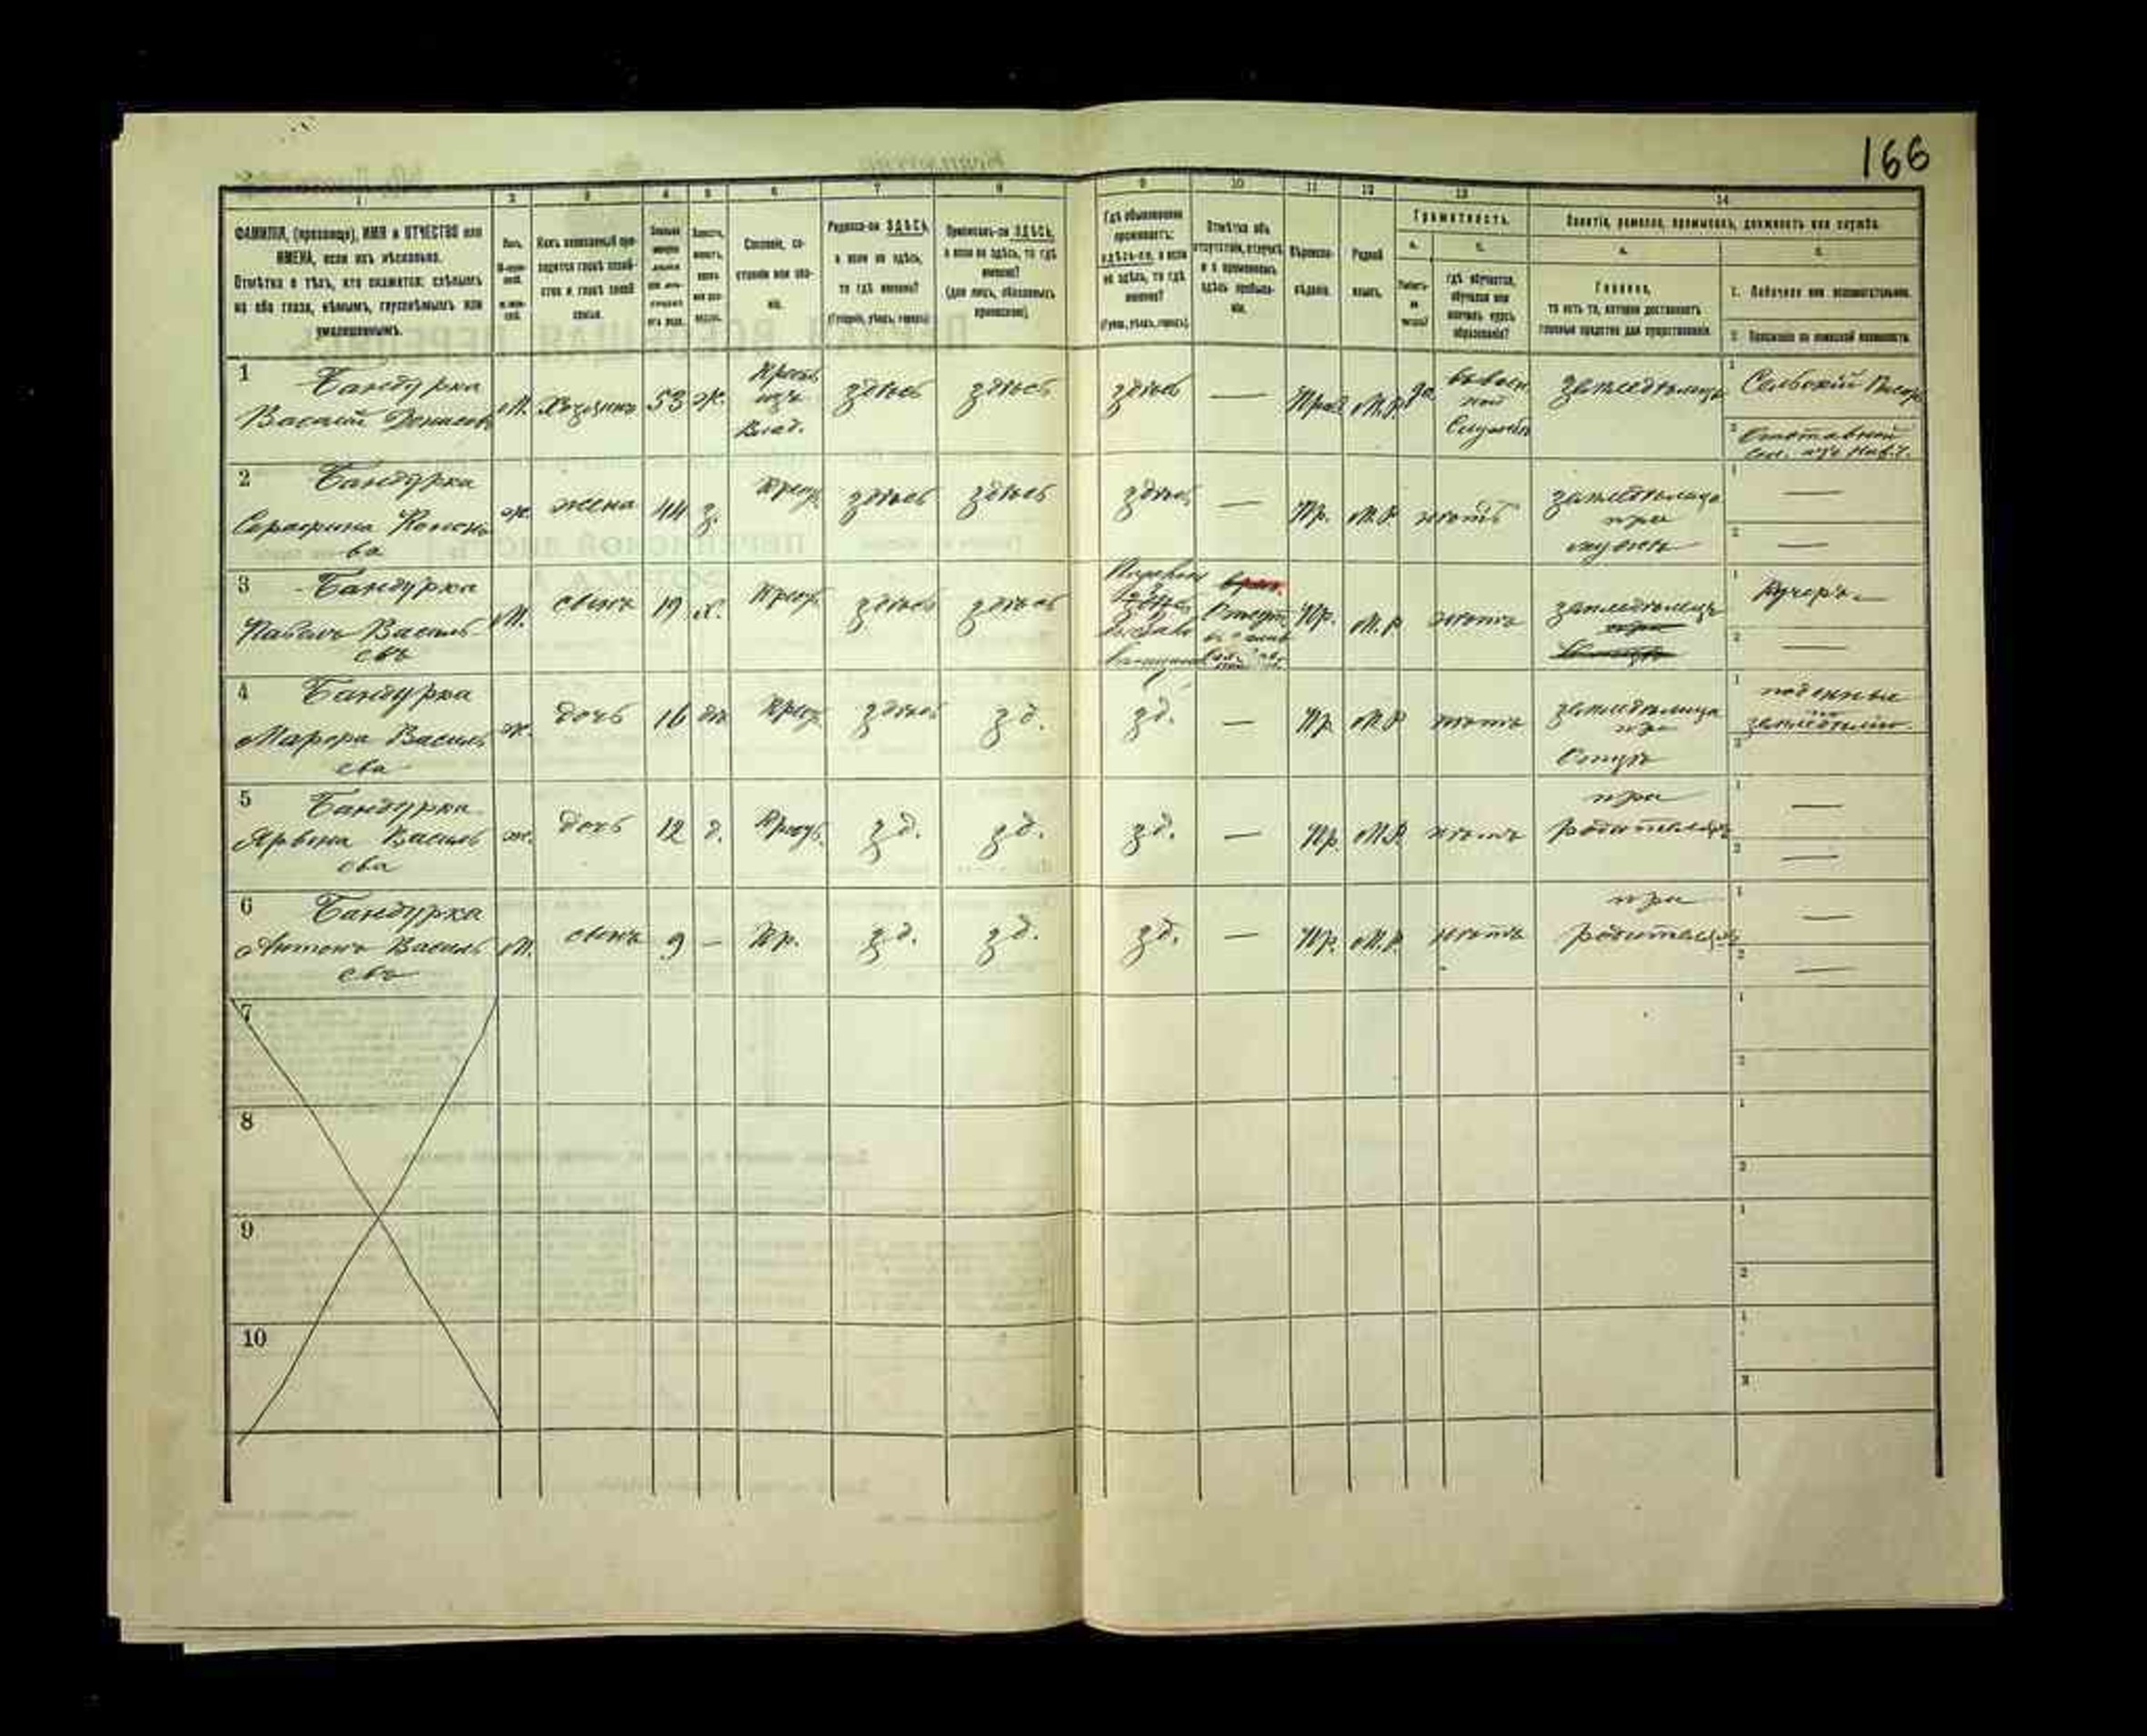 166
1 2 3 4 5 6 7 8 9 10 11 12 13 14
ФАМИЛІЯ, (прозвище), ИМЯ и ОТЧЕСТВО или
ИМЕНА, если ихъ нѣсколько.
Отмѣтка о тѣхъ, кто окажется: слѣпымъ
на оба глаза, нѣмымъ, глухонѣмымъ или
умалишеннымъ.
Полъ.
Какъ записанный при-
ходится главѣ хозяй-
ства и главѣ своей
семьи.
Сословіе, со-
стояніе или зва-
ніе.
Родился-ли ЗДѢСЬ,
а если не здѣсь,
то гдѣ именно?
(Губернія, уѣздъ, городъ)
Приписанъ-ли ЗДѢСЬ,
а если не здѣсь, то гдѣ
именно?
(для лицъ, обязанныхъ
припискою).
Гдѣ обыкновенно
проживаетъ:
здѣсь-ли, а если
не здѣсь, то гдѣ
именно?
(Губер., уѣздъ, городъ).
Отмѣтка объ
отсутствіи, отлучкѣ
и о временномъ
здѣсь пребыва-
ніи.
Вѣроиспо-
вѣданіе.
Родной
языкъ.
Грамотность.
а. б.
Умѣетъ-
ли
читать?
гдѣ обучается,
обучался или
кончилъ курсъ
образованія?
Занятіе, ремесло, промыселъ, должность или служба.
а. б.
Главное,
то есть то, которое доставляетъ
главныя средства для существованія.
1. Побочное или вспомогательное.
2. Положеніе по воинской повинности.
1 Бандурка
Василій Денисовъ
М. Хозяинъ 53 ж.
Крест.
изъ
Влад.
здѣсь здѣсь здѣсь — Прав М.Р. да
въ воен
ной
Службѣ
земледѣлецъ
1 Сельскій Писарь
2 Отставной
2 Бандурка
Серафима Кононо
ва
ж. жена 44 з. Крест. здѣсь здѣсь здѣсь — Пр. М.Р. нѣтъ
земледѣлица
при
мужѣ
1 —
2 —
3 Бандурка
Павелъ Василь
евъ
М. сынъ 19 х. Крест. здѣсь здѣсь
Пр. М.Р. нѣтъ
земледѣлецъ
1 Кучеръ —
2 —
4 Бандурка
Марфа Василь
ева
ж. дочь 16 дѣ Крест. здѣсь зд. зд. — Пр М.Р нѣтъ
земледѣлица
при
Отцѣ
1 поденные
земледѣліе.
2
5 Бандурка
Василь
ева
ж. дочь 12 д. Крест. зд. зд. зд. — Пр. М.Р. нѣтъ
при
родителяхъ
1 —
2 —
6 Бандурка
Антонъ Василь
евъ
М. сынъ 9 — Кр. зд. зд. зд. — Пр. М.Р. нѣтъ
при
родителяхъ
1 —
2 —
7 1
2
8 1
2
9 1
2
10 1
2